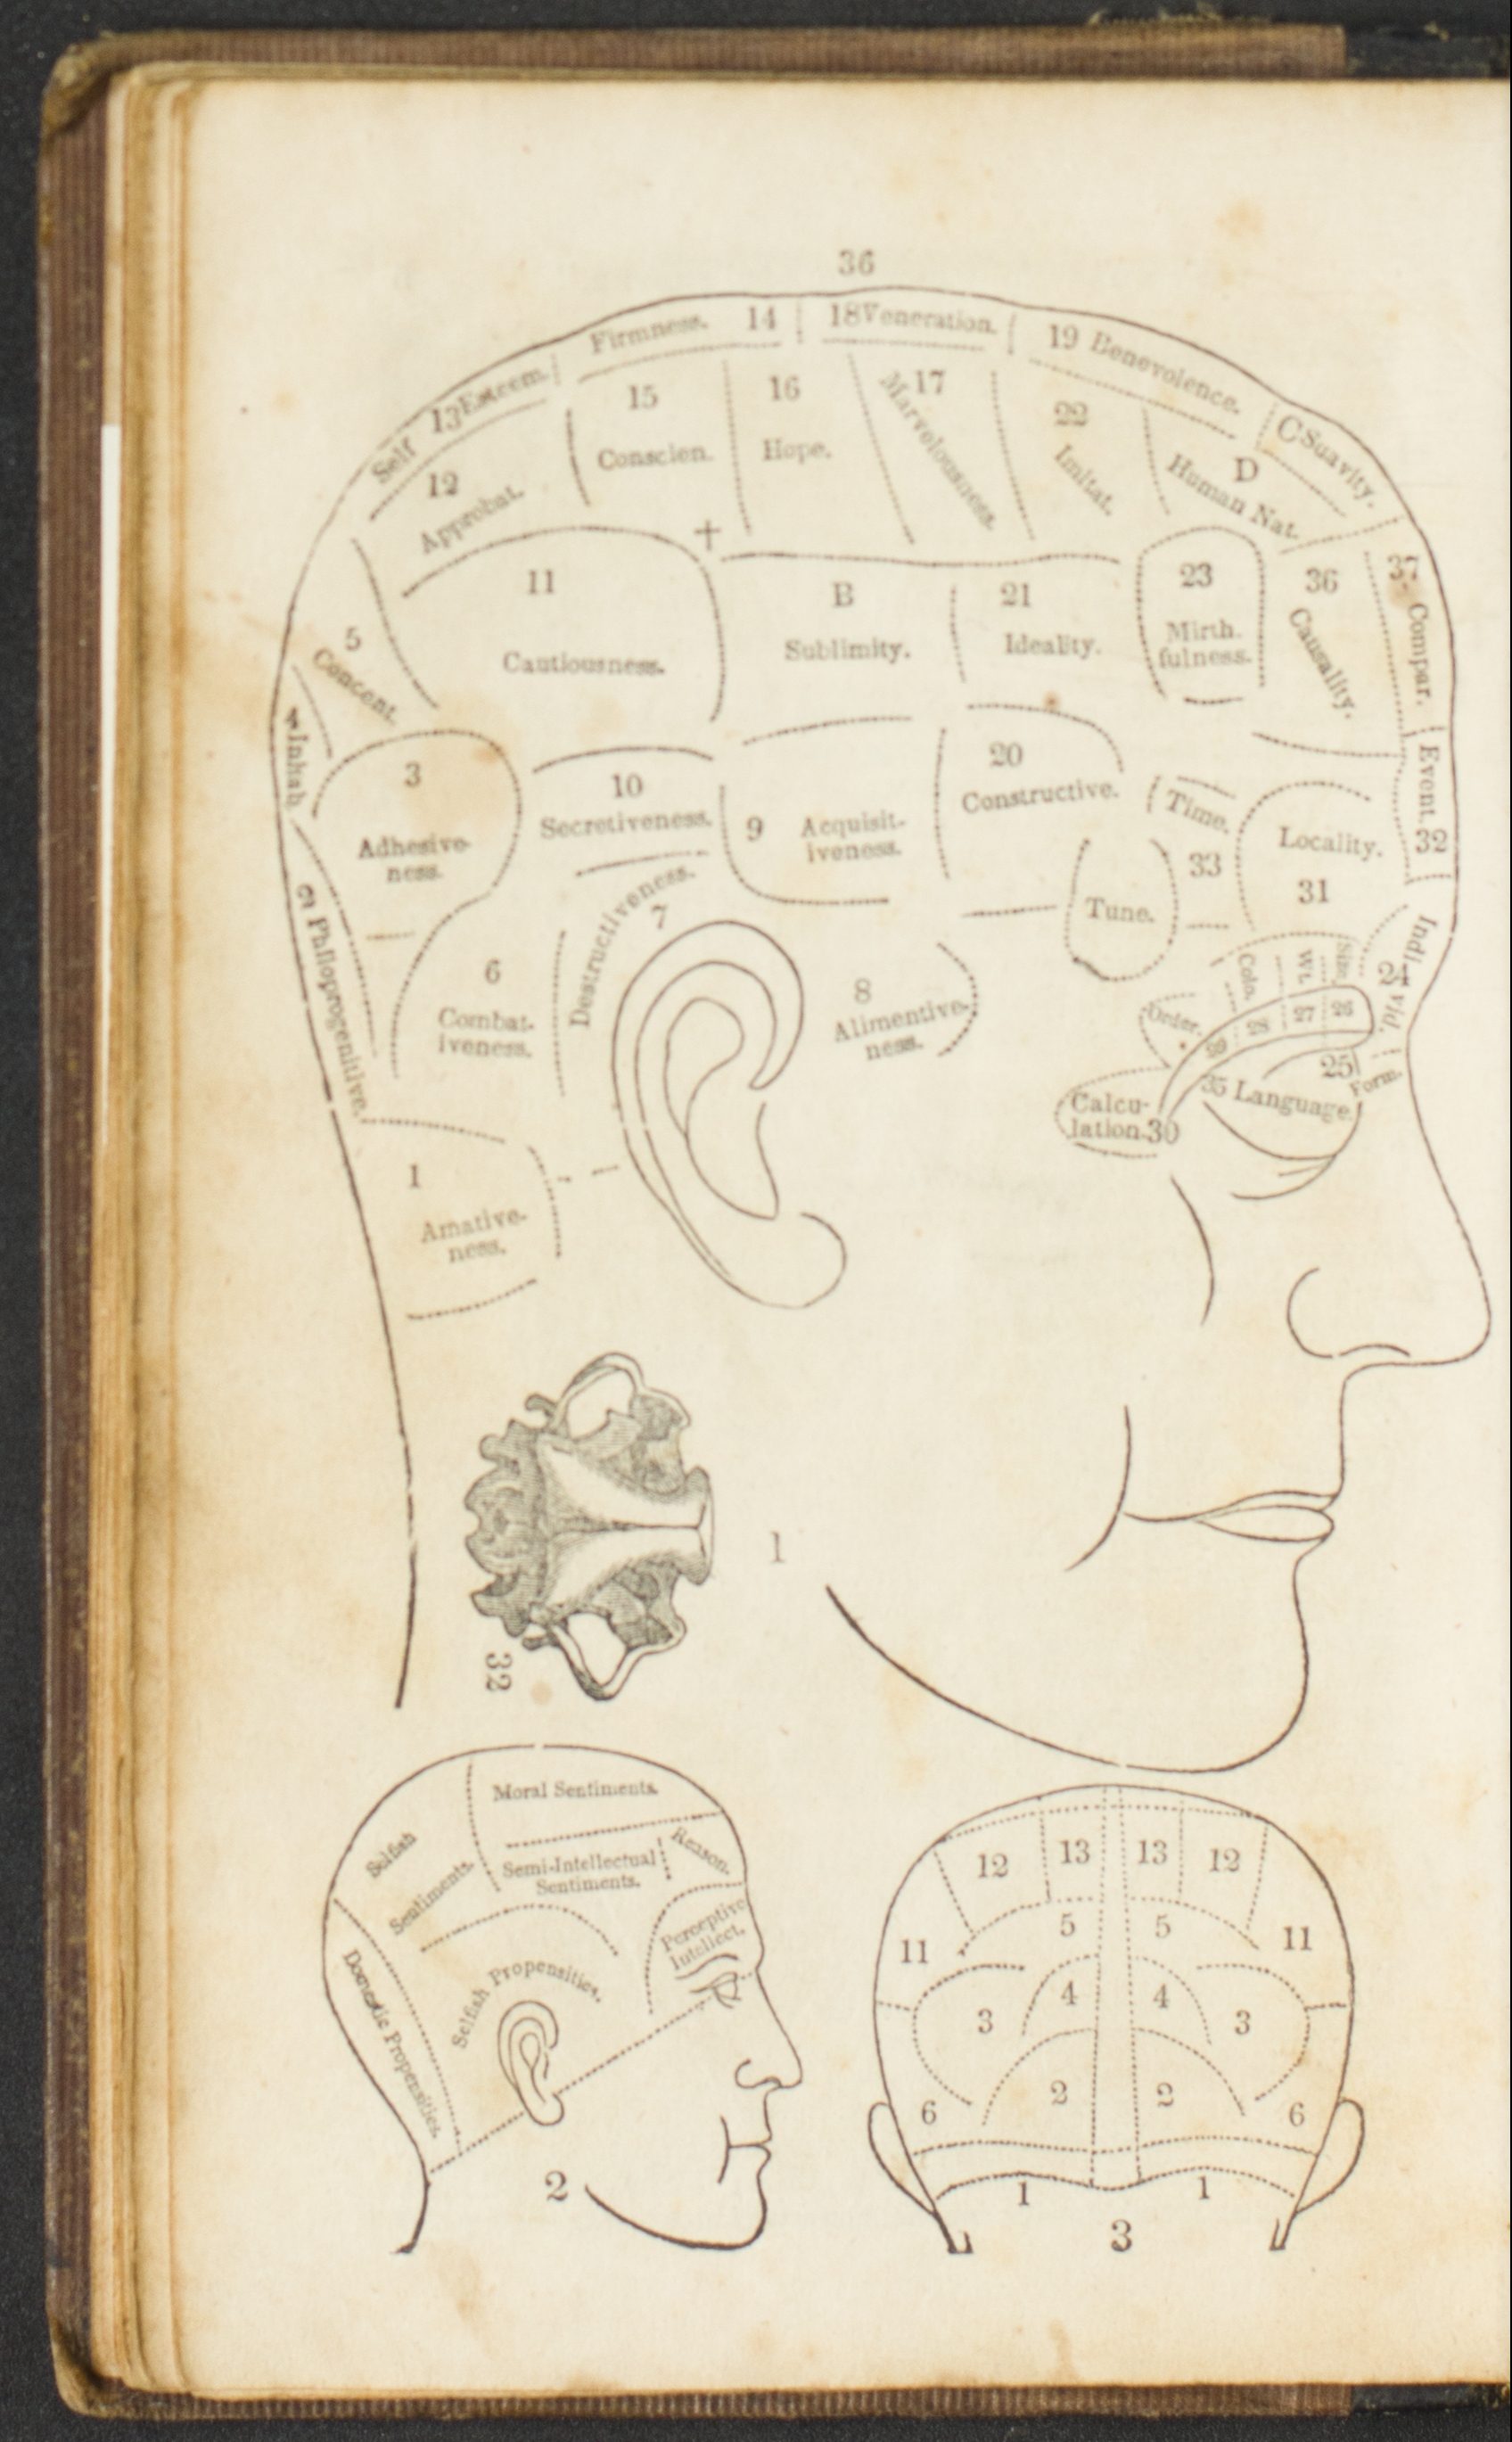 36
Firmness. 14
18 Veneration.
19 Benevolence.
Self 13 Esteem.
15
Conscien.
16
Hope.
17
Marvelousness.
22
Imitat.
D
Human Nat.
C Suavity.
12
Approbat.
+
11
Cautiousness.
B
Sublimity.
21
Ideality.
23
Mirth-
fulness.
36
Causality.
37 Compar.
5
Concent.
4 Inhab.
3
Adhesive-
ness.
10
Secretiveness.
9 Acquisit-
iveness.
20
Constructive.
Time.
33
Tune.
Locality.
31
Event.
32
2 Philoprogenitive.
6
Combat-
iveness.
Destructiveness.
7
8
Alimentive-
ness.
Order.
29
Colo.
28
Wt.
27
Size.
26
Indi-
24
vid.
25
Form.
35 Language.
Calcu-
lation. 30
1
Amative-
ness.
32
1
Moral Sentiments.
Selfish
Sentiments.
Semi-Intellectual
Sentiments.
Reason.
Perceptive
Intellect.
Domestic Propensities.
Selfish Propensities.
2
12 13 13 12
11 5 5 11
3 4 4 3
6 2 2 6
1 1
3